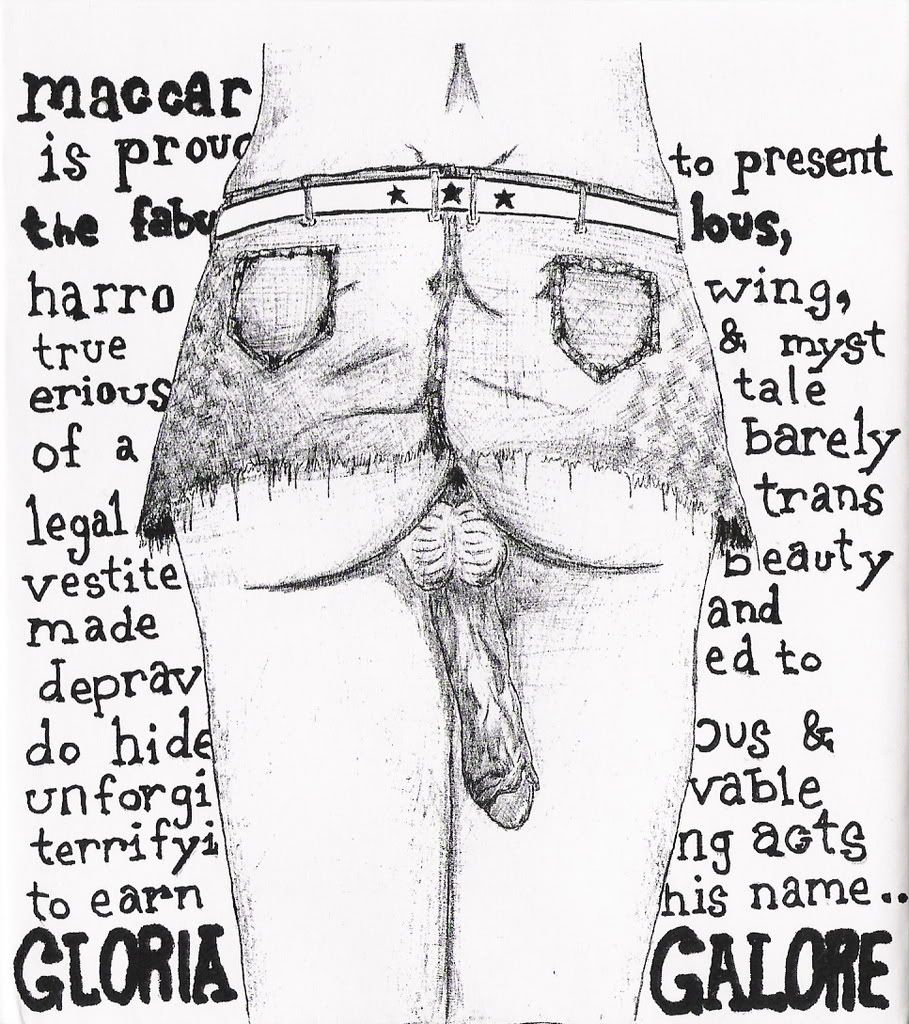 maccar
is proud to present
the fabulous,
harro wing,
true & myst
erious tale
of a barely
legal trans
vestite beauty
made and
depraved to
do hideous &
unforgivable
terrifying acts
to earn his name..
GLORIA GALORE